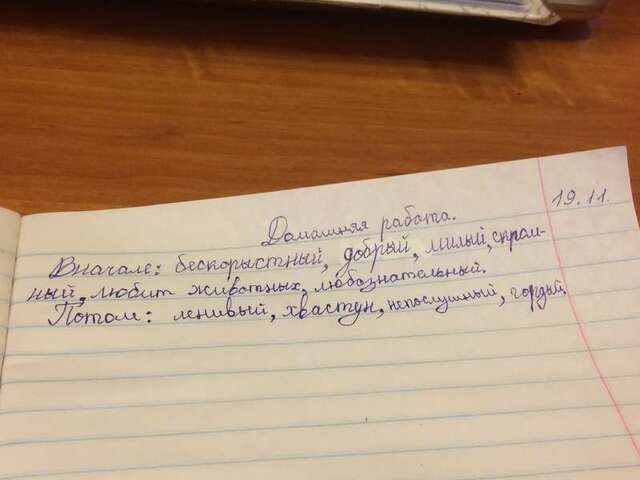 19.11.
Домашняя работа.
Вначале: бескорыстный, добрый, милый, скром-
ный, любит животных, любознательный.
Потом: ленивый, хвастун, непослушный, гордый.